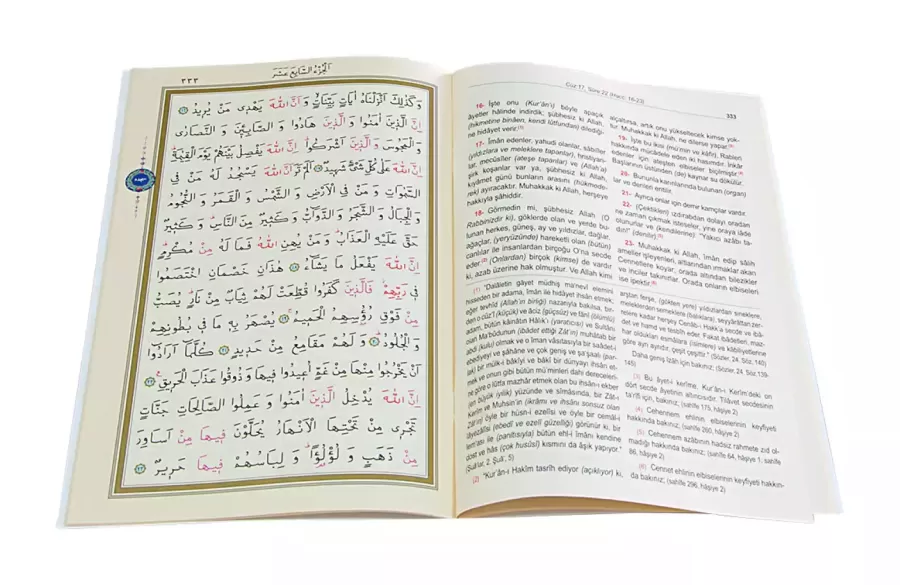 ٣٣٣
اَلْجُزْءُ السَّابِعَ عَشَرَ
وَكَذٰلِكَ اَنْزَلْنَاهُ اٰيَاتٍ بَيِّنَاتٍ وَاَنَّ اللّٰهَ يَهْدِى مَنْ يُرِيدُ ﴿١٦﴾
اِنَّ الَّذِينَ اٰمَنُوا وَالَّذِينَ هَادُوا وَالصَّابِـِٔينَ وَالنَّصَارٰى
وَالْمَجُوسَ وَالَّذِينَ اَشْرَكُوا اِنَّ اللّٰهَ يَفْصِلُ بَيْنَهُمْ يَوْمَ الْقِيٰمَةِ
اِنَّ اللّٰهَ عَلٰى كُلِّ شَىْءٍ شَهِيدٌ ﴿١٧﴾ اَلَمْ تَرَ اَنَّ اللّٰهَ يَسْجُدُ لَهُ مَنْ فِى
السَّمٰوَاتِ وَمَنْ فِى الْاَرْضِ وَالشَّمْسُ وَالْقَمَرُ وَالنُّجُومُ
وَالْجِبَالُ وَالشَّجَرُ وَالدَّوَٓابُّ وَكَثِيرٌ مِنَ النَّاسِ وَكَثِيرٌ
حَقَّ عَلَيْهِ الْعَذَابُ وَمَنْ يُهِنِ اللّٰهُ فَمَا لَهُ مِنْ مُكْرِمٍ
اِنَّ اللّٰهَ يَفْعَلُ مَا يَشَٓاءُ ﴿١٨﴾ هٰذَانِ خَصْمَانِ اخْتَصَمُوا
فِى رَبِّهِمْ فَالَّذِينَ كَفَرُوا قُطِّعَتْ لَهُمْ ثِيَابٌ مِنْ نَارٍ يُصَبُّ
مِنْ فَوْقِ رُؤُسِهِمُ الْحَمِيمُ ﴿١٩﴾ يُصْهَرُ بِهِ مَا فِى بُطُونِهِمْ
وَالْجُلُودُ ﴿٢٠﴾ وَلَهُمْ مَقَامِعُ مِنْ حَدِيدٍ ﴿٢١﴾ كُلَّمَٓا اَرَادُٓوا
اَنْ يَخْرُجُوا مِنْهَا مِنْ غَمٍّ اُعِيدُوا فِيهَا وَذُوقُوا عَذَابَ الْحَرِيقِ ﴿٢٢﴾
اِنَّ اللّٰهَ يُدْخِلُ الَّذِينَ اٰمَنُوا وَعَمِلُوا الصَّالِحَاتِ جَنَّاتٍ
تَجْرِى مِنْ تَحْتِهَا الْاَنْهَارُ يُحَلَّوْنَ فِيهَا مِنْ اَسَاوِرَ
مِنْ ذَهَبٍ وَلُؤْلُؤًا وَلِبَاسُهُمْ فِيهَا حَرِيرٌ ﴿٢٣﴾
Cüz 17, Sûre 22 (Hacc: 16-23)
333
16- İşte onu (Kur'ân'ı) böyle apaçık
âyetler hâlinde indirdik; şübhesiz ki Allah,
(hikmetine binâen, kendi lütfundan) dilediği-
ne hidâyet verir.(1)
17- Îmân edenler, yahudi olanlar, sâbiîler
(yıldızlara ve meleklere tapanlar), hristiyan-
lar, mecûsîler (ateşe tapanlar) ve (Allah'a)
şirk koşanlar var ya, şübhesiz ki Allah,
kıyâmet günü bunların arasını (hükmede-
rek) ayıracaktır. Muhakkak ki Allah, herşeye
hakkıyla şâhiddir.
18- Görmedin mi, şübhesiz Allah (O
Rabbinizdir ki), göklerde olan ve yerde bu-
lunan herkes, güneş, ay ve yıldızlar, dağlar,
ağaçlar, (yeryüzünde) hareketli olan (bütün)
canlılar ile insanlardan birçoğu O'na secde
eder.(2) (Onlardan) birçok (kimse) de vardır
ki, azab üzerine hak olmuştur. Ve Allah kimi
alçaltırsa, artık onu yükseltecek kimse yok-
tur. Muhakkak ki Allah, ne dilerse yapar.(3)
19- İşte bu ikisi (mü'min ve kâfir), Rableri
hakkında mücâdele eden iki hasımdır. İnkâr
edenler için ateşden elbiseler biçilmiştir.(4)
Başlarının üstünden (de) kaynar su dökülür.
20- Bununla karınlarında bulunan (organ)
lar ve derileri eritilir.
21- Ayrıca onlar için demir kamçılar vardır.
22- (Çektikleri) ızdırabdan dolayı oradan
ne zaman çıkmak isteseler, yine oraya iâde
olunurlar ve (kendilerine): "Yakıcı azâbı ta-
dın!" (denilir).(5)
23- Muhakkak ki Allah, îmân edip sâlih
ameller işleyenleri, altlarından ırmaklar akan
Cennetlere koyar; orada altından bilezikler
ve inciler takınırlar. Orada onların elbiseleri
ise ipektir.(6)
(1) "Dalâletin gâyet müdhiş ma'nevî elemini
hisseden bir adama, îmân ile hidâyet ihsân etmek;
eğer tevhîd (Allah'ın birliği) nazarıyla bakılsa, bir-
den o cüz'î (küçük) ve âciz (güçsüz) ve fânî (ölümlü)
adam, bütün kâinâtın Hâlık'ı (yaratıcısı) ve Sultânı
olan Ma'bûdunun (ibâdet ettiği Zât'ın) muhâtab bir
abdi (kulu) olmak ve o îmân vâsıtasıyla bir saâdet-i
ebediyeyi ve şâhâne ve çok geniş ve şa'şaalı (parlak)
bir mülk-i bâkîyi ve bâkî bir dünyayı ihsân et-
mek ve onun gibi bütün mü'minleri dahi dereceleri-
ne göre o lütfa mazhar etmek olan bu ihsân-ı ekber
(en büyük iyilik) yüzünde ve sîmâsında, bir Zât-ı
Kerîm ve Muhsin'in (ikrâmı ve ihsânı sonsuz olan
Zât'ın) öyle bir hüsn-i ezelîsi ve öyle bir cemâl-i
lâyezâlîsi (ebedî ve ezelî güzelliği) görünür ki, bir
lem'ası ile (parıltısıyla) bütün ehl-i îmânı kendine
dost ve hâs (çok husûsî) kısmını da âşık yapıyor."
(Şuâ'lar, 2. Şuâ', 5)
(2) "Kur'ân-ı Hakîm tasrîh ediyor (açıklıyor) ki,
arştan ferşe, (gökten yere) yıldızlardan sineklere,
meleklerden semeklere (balıklara), seyyârâttan zer-
relere kadar herşey Cenâb-ı Hakk'a secde ve ibâ-
det ve hamd ve tesbîh eder. Fakat ibâdetleri, maz-
har oldukları esmâlara (isimlere) ve kābiliyetlerine
göre ayrı ayrıdır, çeşit çeşittir." (Sözler, 24. Söz, 145)
Daha geniş îzâh için bakınız; (Sözler, 24. Söz, 139-
145)
(3) Bu âyet-i kerîme, Kur'ân-ı Kerîm'deki on
dört secde âyetinin altıncısıdır. Tilâvet secdesinin
ta'rîfi için, bakınız; (sahîfe 175, hâşiye 2)
(4) Cehennem ehlinin elbiselerinin keyfiyeti hak-
kında, bakınız; (sahîfe 260, hâşiye 2)
(5) Cehennem azâbının hadsiz rahmete zıd ol-
madığı hakkında, bakınız; (sahîfe 64, hâşiye 1; sahîfe
86, hâşiye 2)
(6) Cennet ehlinin elbiselerinin keyfiyeti hakkın-
da bakınız; (sahîfe 296, hâşiye 2)